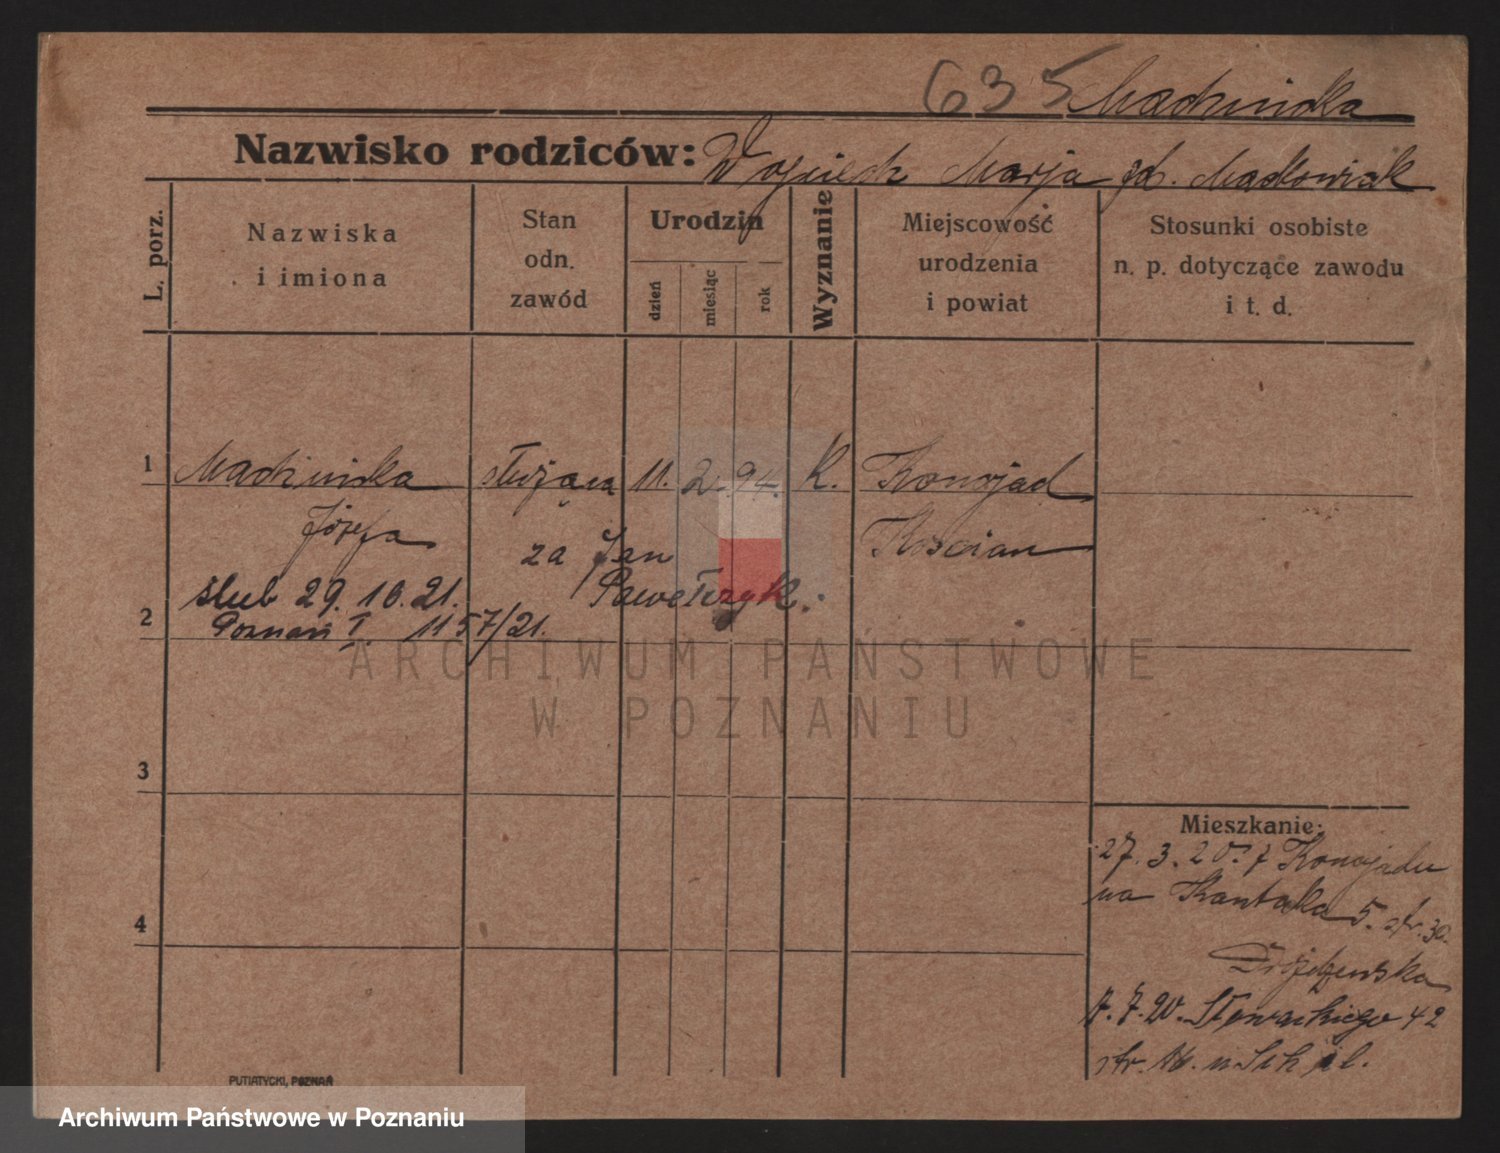 635 Machinska
Nazwisko rodziców: Wojciech Marja zd. Maćkowiak
L. porz.
Nazwiska
i imiona
Stan
odn.
zawód
Urodzin
dzień
miesiąc
rok
Wyznanie
Miejscowość
urodzenia
i powiat
Stosunki osobiste
n. p. dotyczące zawodu
i t. d.
1 Machinska służąca 11. 2. 94. K. Konojad
Józefa za Jan Kościan
ślub 29. 10. 21. Pawełczyk.
2 Poznań I. 1157/21.
ARCHIWUM PAŃSTWOWE
W POZNANIU
3
4
Mieszkanie:
27. 3. 20. z Konojadu
na Kantaka 5. str. 30.
7. 7. 20. Słowackiego 42
str.
PUTIATYCKI, POZNAŃ
Archiwum Państwowe w Poznaniu